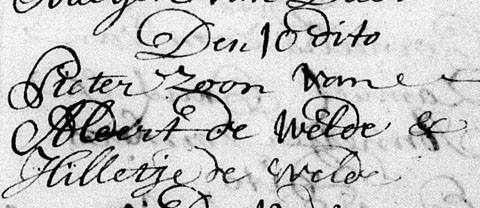 Den 10 dito
Pieter Zoon van
Aleert de Welde &
Hilletje de Welde